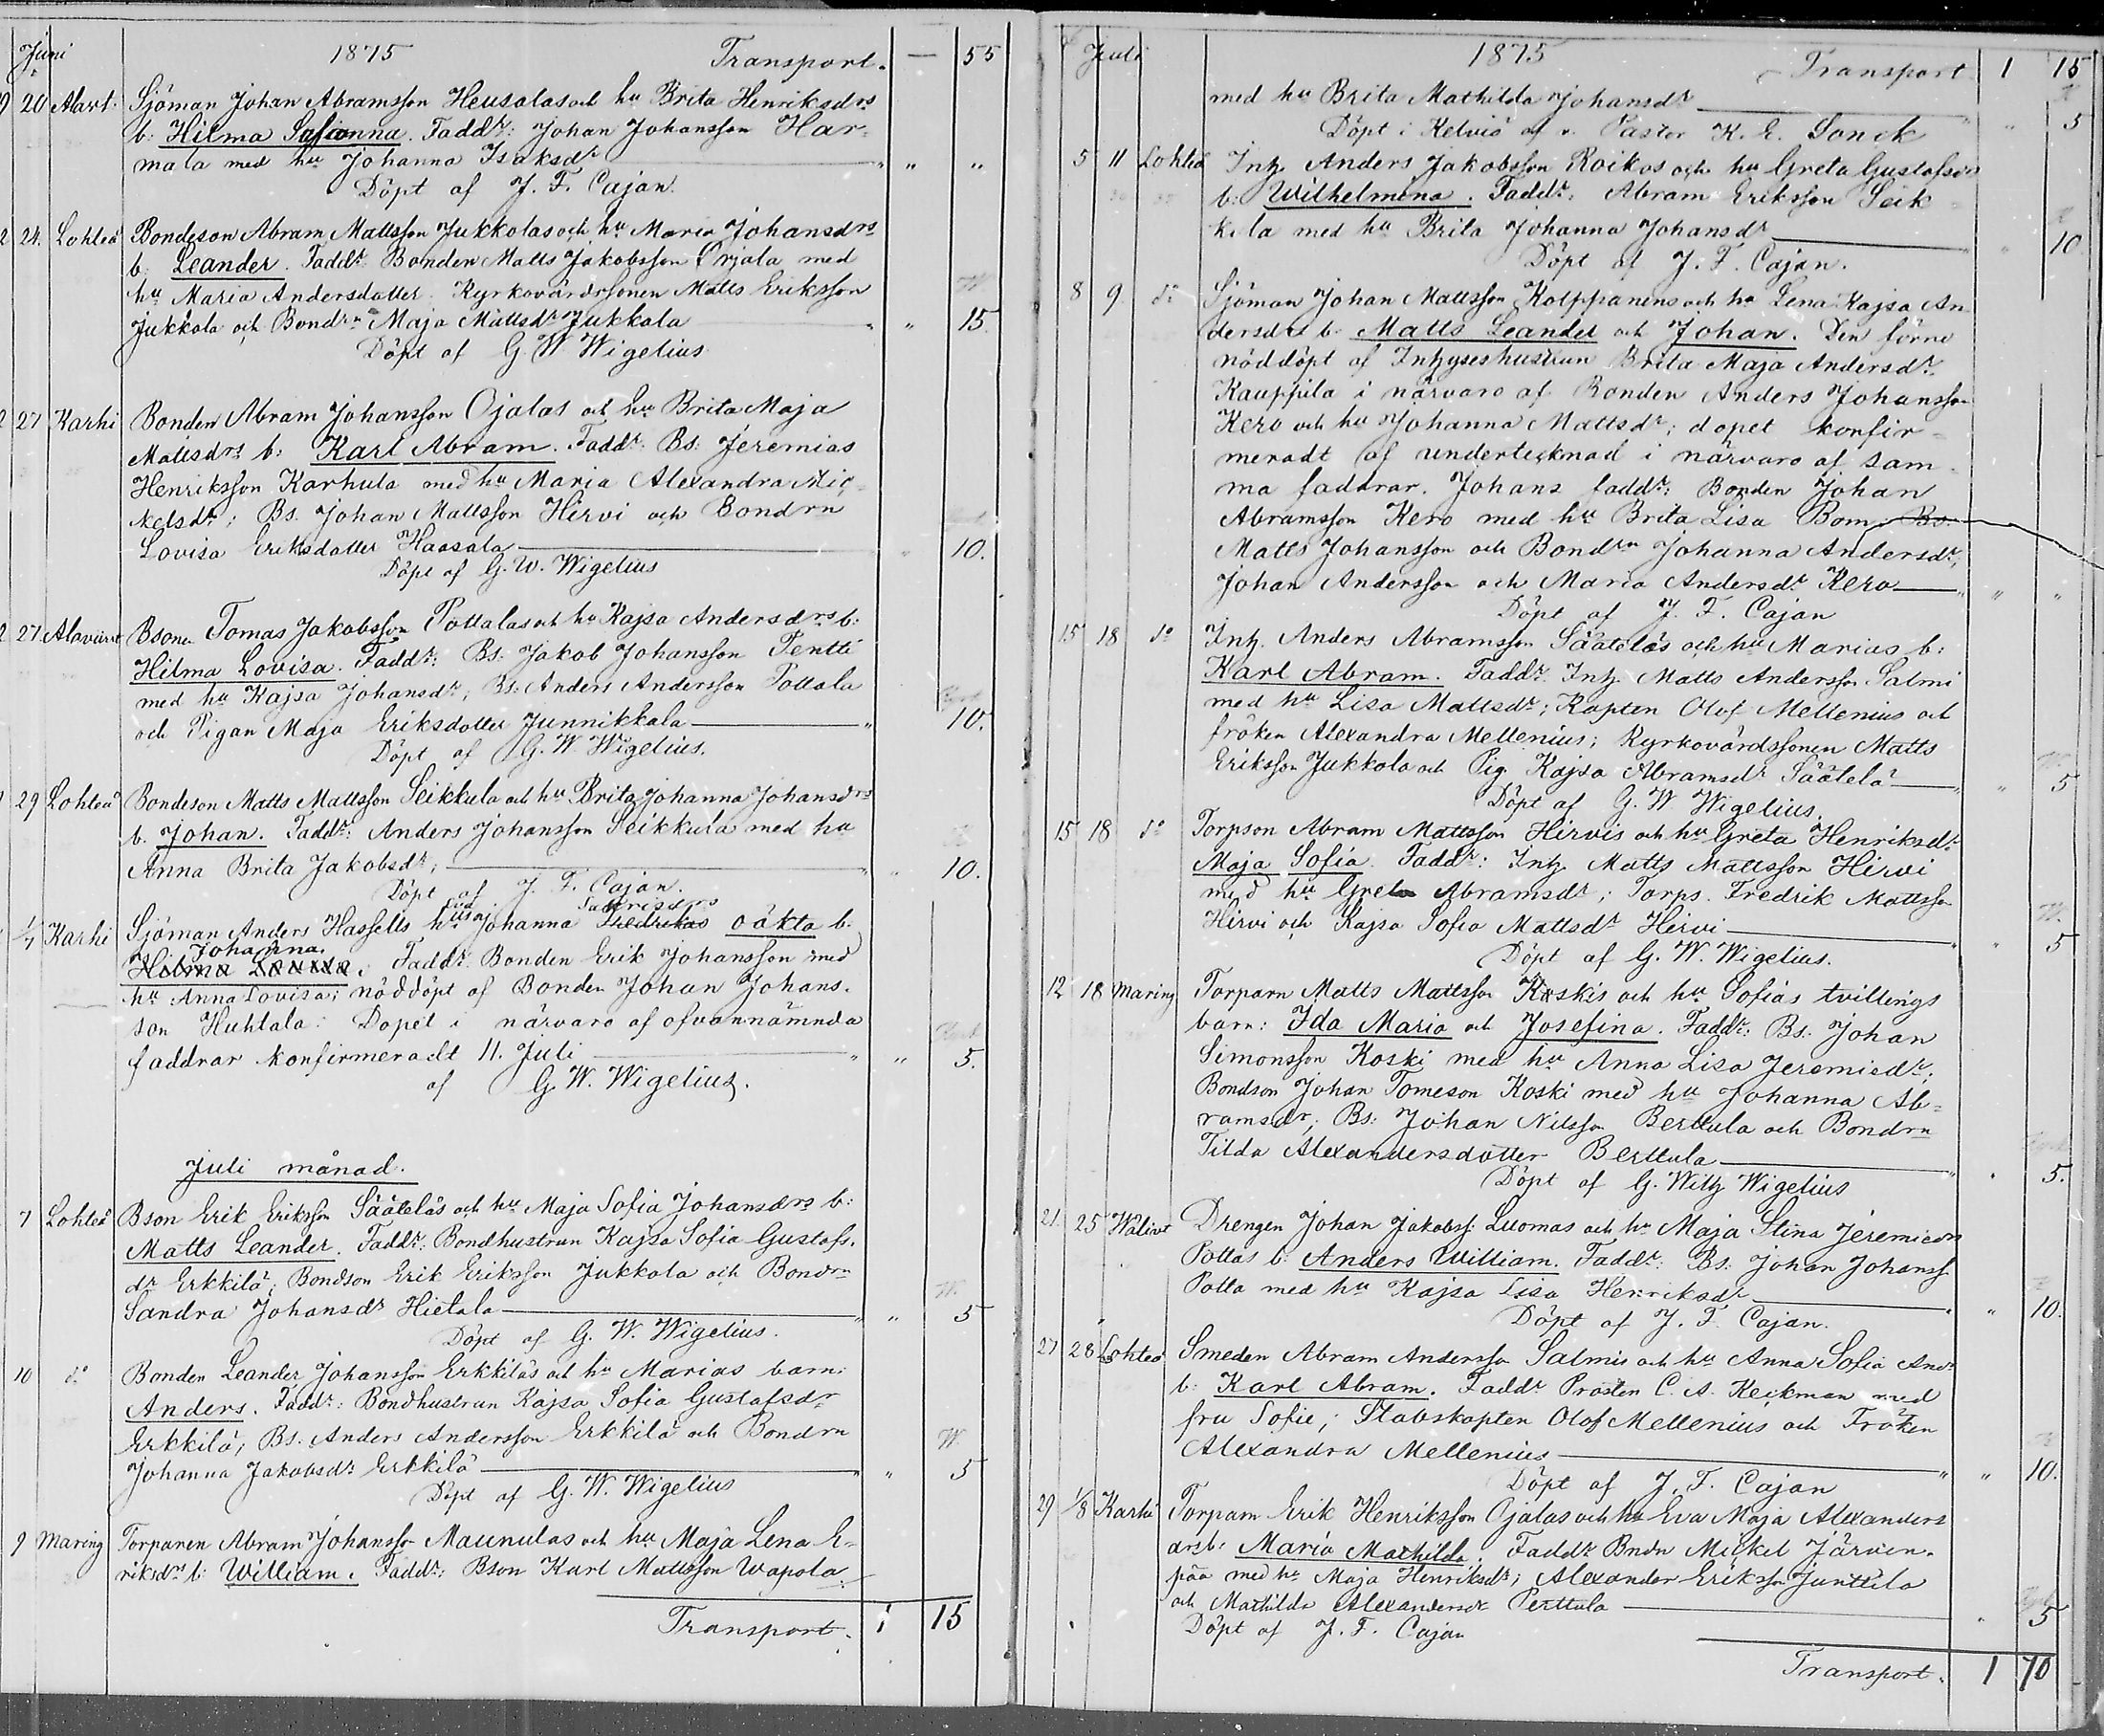 Juni 1875 Transport. — 55
9 20 Alavt. Sjöman Johan Abramsson Heusalas och hu Brita Henriksdrs
b: Hilma Faddr: Johan Johansson Har-
mala med hu Johanna Isaksdr " " "
Döpt af J. F. Cajan.
2 24. Lohteå Bondeson Abram Mattsson Jukkolas och hu Maria Johansdrs
b: Leander. Faddr Bonden Matts Jakobsson Orjala med
hu Maria Andersdatter. Kyrkovärdssonen Matts Eriksson
Jukkola och Bondrn Maja Mattsdr Jukkola " " 15.
Döpt af G. W. Wigelius
2 27 Karhi Bonden Abram Johansson Ojalas och hu Brita Maja
Mattsdrs b: Karl Abram. Faddr: Bs: Jeremias
Henriksson Karhula med hu Maria Alexandra Mic-
kelsdr; Bs. Johan Mattsson Hirvi och Bondrn
Lovisa Eriksdatter Haasala " 10.
Döpt af G. W. Wigelius
2 27 Alaviirret Bsonen Tomas Jakobsson Pottalas och hu Kajsa Andersdrs b:
Hilma Lovisa. Faddr: Bs: Jakob Johansson Tentti
med hu Kajsa Johansdr; Bs: Anders Andersson Pottala
och Pigan Maja Eriksdotter Junnikkala " 10.
Döpt af G. W. Wigelius.
29 Lohteå Bondeson Matts Mattsson Seikkula och hu Brita Johanna Johansdrs
b. Johan. Faddr: Anders Johansson Seikkula med hu
Anna Brita Jakobsdr; " " 10.
Döpt af J. F. Cajan.
1/7 Karhi Sjöman Anders Hassells hus Johanna Fredrikas oäkta b.
Johanna.
Hilma Lovisa. Faddr: Bonden Erik Johansson med
hu Anna Lovisa; nöddöpt af Bonden Johan Johans-
son Huhtala: Dopet i närvaro af ofvannämnda
faddrar konfirmeradt 11. Juli " " 5.
af G. W. Wigelius.
Juli månad.
7 Lohteå Bson Erik Eriksson Sääteläs och hu Maja Sofia Johansdrs b:
Matts Leander. Faddr: Bondhustrun Kajsa Sofia Gustafs-
dr Erkkilä; Bondson Erik Eriksson Jukkola och Bondrn
Sandra Johansdr Hietala " " W. 5
Döpt af G. W. Wigelius.
10 do Bonden Leander Johansson Erkkiläs och hu Marias barn:
Anders. Faddr: Bondhustrun Kajsa Sofia Gustafsdr
Erkkilä; Bs. Anders Andersson Erkkilä och Bondrn W.
Johanna Jakobsdr Erkkilä " " 5
Döpt af G. W. Wigelius
9 Maring Torparen Abram Johansson Maunulas och hu Maja Lena E-
riksdrs b: William. Faddr: Bson Karl Mattsson Wapola
Transport. 1 15
Juli 1875 Transport 1 15
med hu Brita Mathilda Johansdr " " 5
Döpt i Kelviå af v. Pastor K. E. Sonck
5 11 Lohteå Inh. Anders Jakobsson Roikos och hu Greta Gustafsdrs
b: Wilhelmina. Faddr: Abram Eriksson Seik-
kila med hu Brita Johanna Johansdr " " 10
Döpt af J. F. Cajan.
8 9. do Sjöman Johan Mattsson Kolppanens och hu Lena Kajsa An-
dersdrs b. Matts Leander och Johan. Den förre
nöddöpt af Inhyseshustrun Brita Maja Andersdr
Kauppila i närvaro af Bonden Anders Johansson
Kero och hu Johanna Mattsdr; dopet konfir-
meradt af undertecknad i närvaro af sam-
ma faddrar. Johans faddr: Bonden Johan
Abramsson Kero med hu Brita Lisa Bom; Bs.
Matts Johansson och Bondrn Johanna Andersdr,
Johan Andersson och Maria Andersdr Kero " " "
Döpt af J. F. Cajan
15 18 do Inh. Anders Abramsson Sääteläs och hu Marias b:
Karl Abram. Faddr. Inh. Matts Andersson Salmi
med hu Lisa Mattsdr; Kapten Olof Mellenius och
fröken Alexandra Mellenius; Kyrkovärdssonen Matts
Eriksson Jukkola och Pig. Kajsa Abramsdr Säätelä " " 5
Döpt af G. W. Wigelius.
15 18 do Torpson Abram Mattsson Hirvis och hu Greta Henriksdr
Maja Sofia. Faddr: Inh. Matts Mattsson Hirvi
med hu Greta Abramsdr; Torps. Fredrik Mattsson W.
Hirvi och Kajsa Sofia Mattsdr Hirvi " " 5
Döpt af G. W. Wigelius.
12 18 Maring Torparn Matts Mattsson Koskis och hu Sofias tvillings
barn: Ida Maria och Josefina. Faddr: Bs. Johan
Simonsson Koski med hu Anna Lisa Jeremiedr;
Bondson Johan Tomeson Koski med hu Johanna Ab-
ramsdr; Bs: Johan Nilsson Berttula och Bondrn
Tilda Alexandersdotter Berttula " 5.
Döpt af G. Wilh Wigelius
21 25 Wälivirt Drengen Johan Jakobss: Luomas och hu Maja Stina Jeremiedrs
Pottas b: Anders William. Faddr: Bs: Johan Johanss
Potta med hu Kajsa Lisa Henriksdr " " 10.
Döpt af J. F. Cajan.
27 28 Lohteå Smeden Abram Andersson Salmis och hu Anna Sofia Andr
b: Karl Abram. Faddr Prosten C. A. Keckman med
fru Sofie; Stabskapten Olof Mellenius och Fröken
Alexandra Mellenius " " 10.
Döpt af J. F. Cajan
29 1/8 Karhi Torparn Erik Henriksson Ojalas och hu Eva Maja Alexanders
drs b: Maria Mathilda. Faddr Bndn Mickel Järvin-
pää med hu Maja Henriksdr; Alexander Eriksson Junttila
och Mathilda Alexandersdr Perttula " 5
Döpt af J. F. Cajan
Transport. 1 70